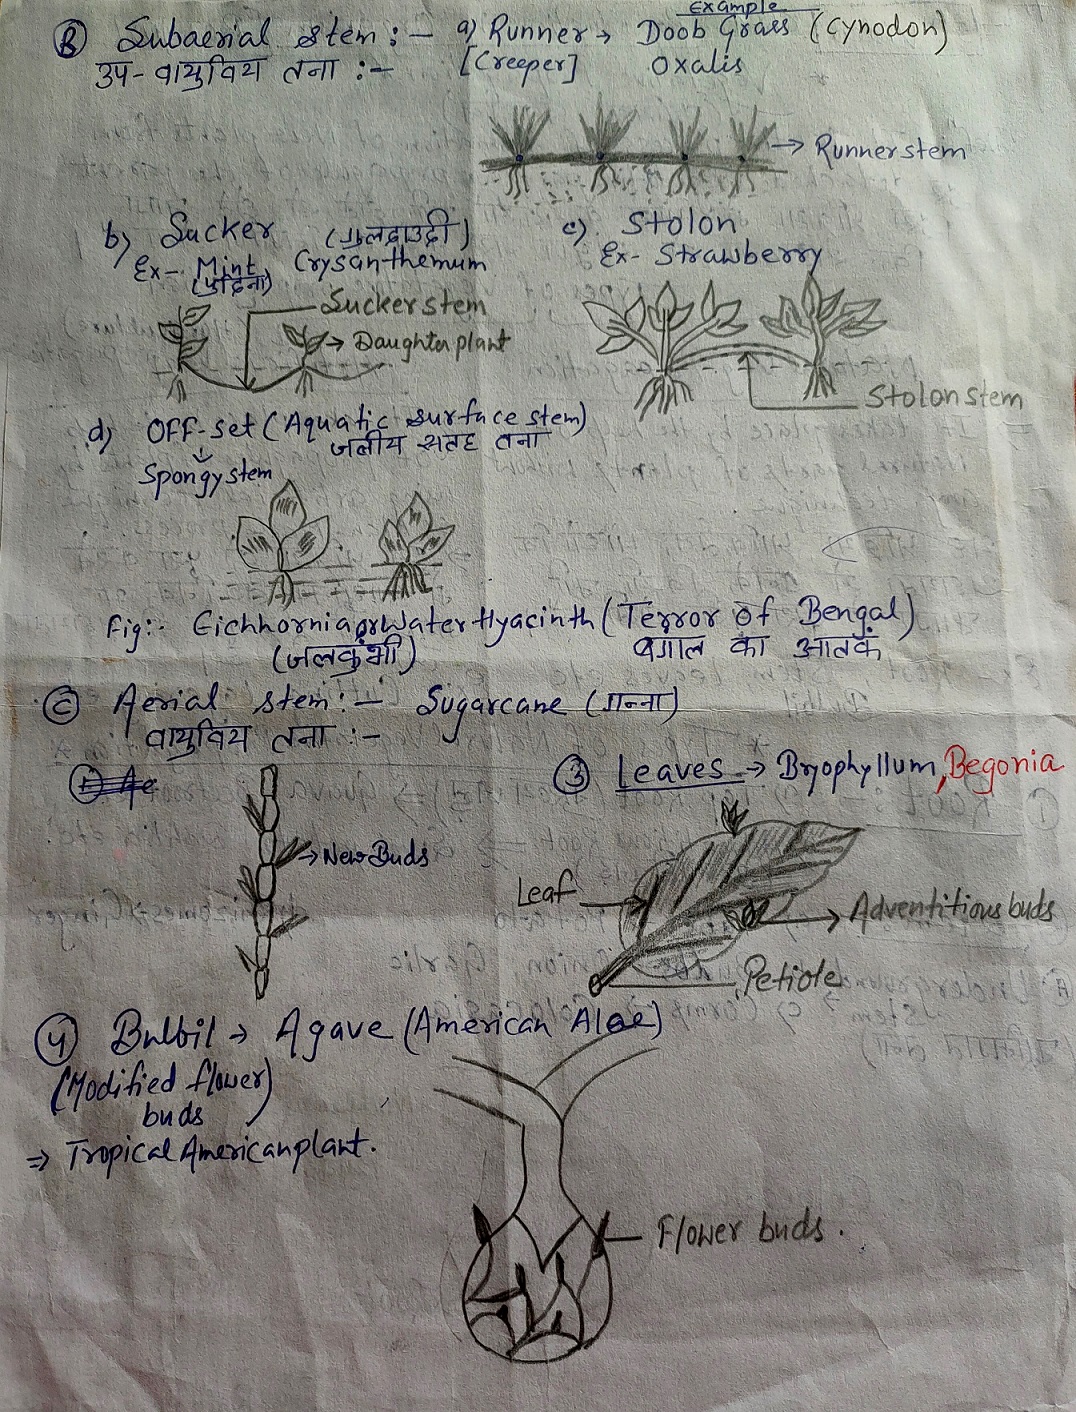 Example
Ⓑ Subaerial stem :- a) Runner → Doob Grass (Cynodon)
उप-वायुविय तना :- [Creeper] Oxalis
→ Runner stem
b) Sucker (गुलदाउदी)
Ex- Mint Crysanthemum
(पुदिना)
Sucker stem
→ Daughter plant
c) Stolon
Ex- Strawberry
Stolon stem
d) OFF-set (Aquatic surface stem)
जलीय सतह तना
Spongy stem
Fig:- Eichhornia or Water Hyacinth (Terror of Bengal)
(जलकुंभी) बंगाल का आतंक
Ⓒ Aerial stem :- Sugarcane (गन्ना)
वायुविय तना :-
→ New Buds
③ Leaves → Bryophyllum, Begonia
Leaf
Adventitious buds
Petiole
④ Bulbil → Agave (American Aloe)
(Modified flower)
buds
⇒ Tropical American plant.
Flower buds.